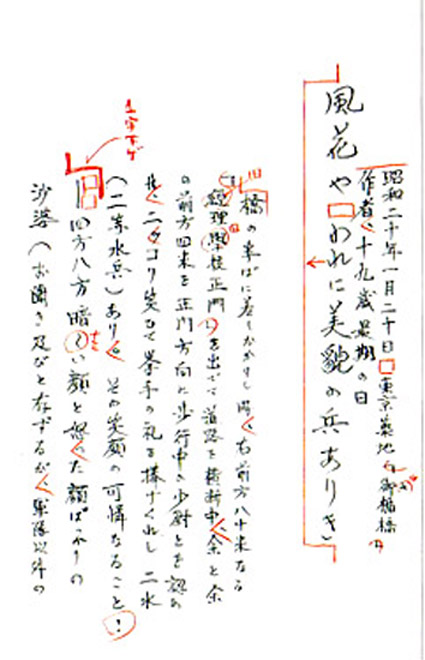 昭和二十年一月二十日□東京築地の御橋橋
作者十九歳最期の日
風花や□われに美貌の兵ありき
橋の半ばに差しかかりし時、右前方八十米なる
経理学校正門を出でて道路を横断中、余と余
の前方四米を正門方向に歩行中の少尉とを認め
二コリ笑ひて挙手の礼を捧げくれし二水
(二等水兵)あり。その笑顔の可憐なること!
四方八方暗い顔と怒った顔ばかりの
沙婆(お聞き及びと存ずるが、軍隊以外の
1字下ゲ